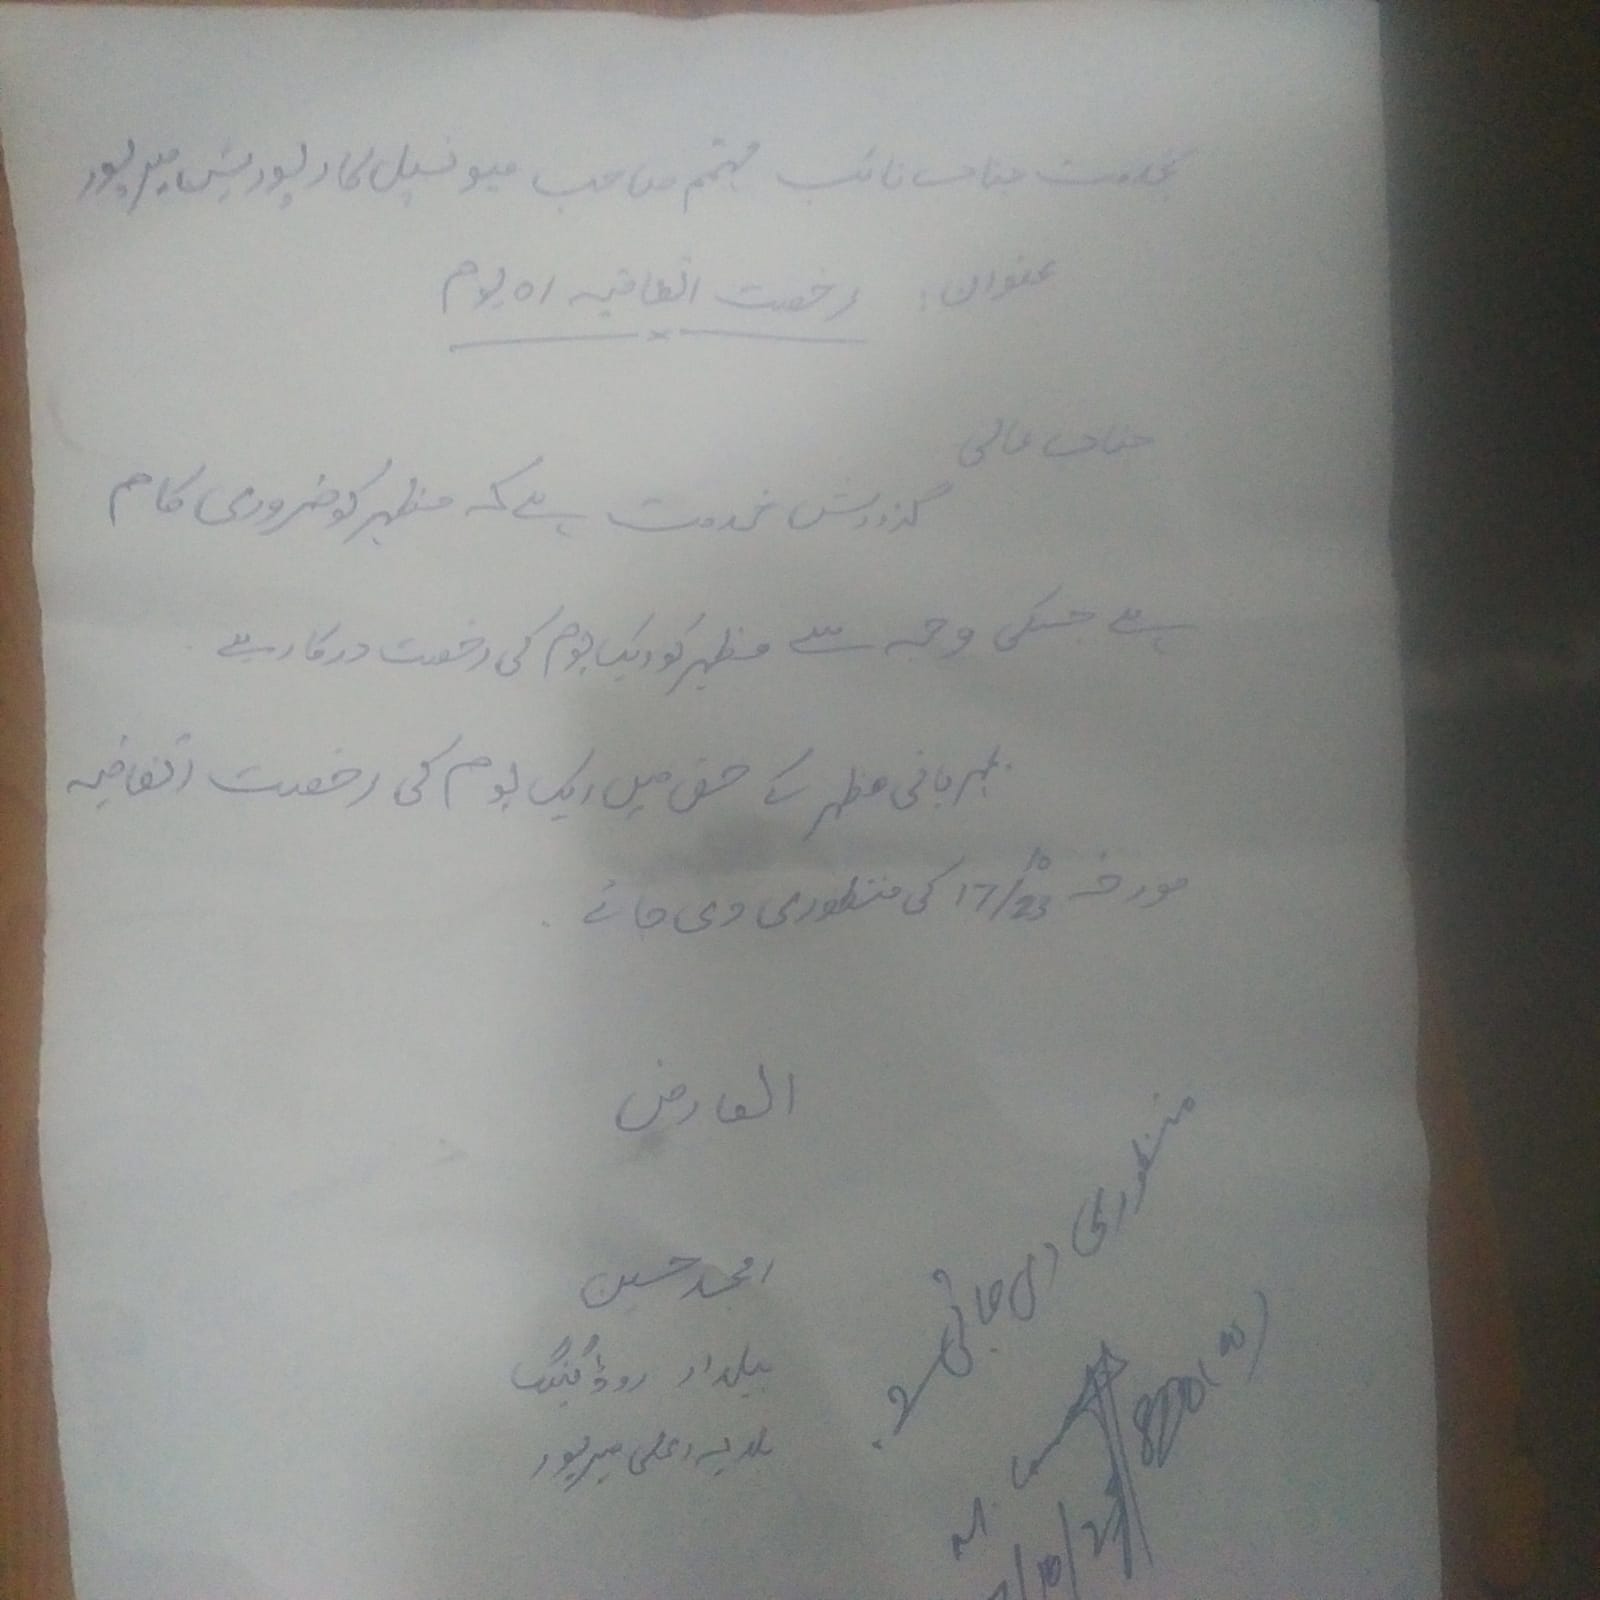 بخدمت جناب نائب مہتمم صاحب میونسپل کارپوریشن میرپور
عنوان: رخصت اتفاقیہ 01 یوم
جناب عالی
گزارش خدمت ہے کہ مظہر کو ضروری کام
ہے جسکی وجہ سے مظہر کو ایک یوم کی رخصت درکار ہے
بمہربانی مظہر کے حق میں ایک یوم کی رخصت اتفاقیہ
مورخہ 17/10/23 کی منظوری دی جائے ۔
العارض
امجد حسین
بیلدار روڈ گینگ
بلدیہ اعلی میرپور
منظوری دی جاتی ہے ۔